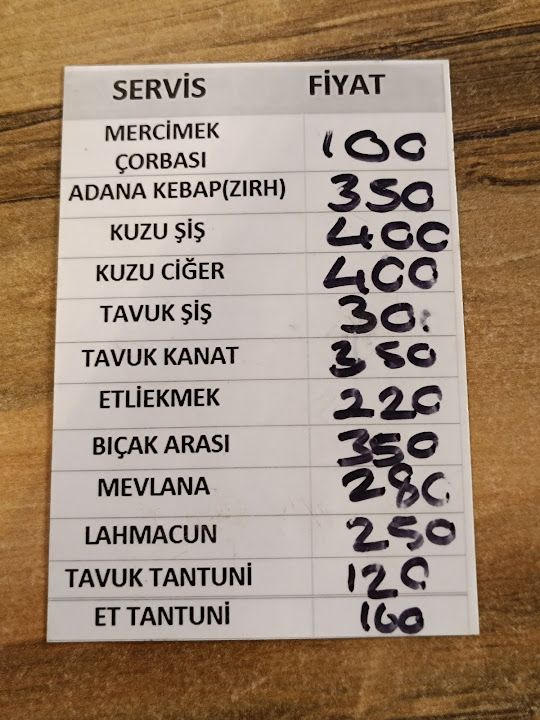 SERVİS FİYAT
MERCİMEK
ÇORBASI 100
ADANA KEBAP(ZIRH) 350
KUZU ŞİŞ 400
KUZU CİĞER 400
TAVUK ŞİŞ
TAVUK KANAT 350
ETLİEKMEK 220
BIÇAK ARASI 350
MEVLANA 280
LAHMACUN 250
TAVUK TANTUNİ 120
ET TANTUNİ 160